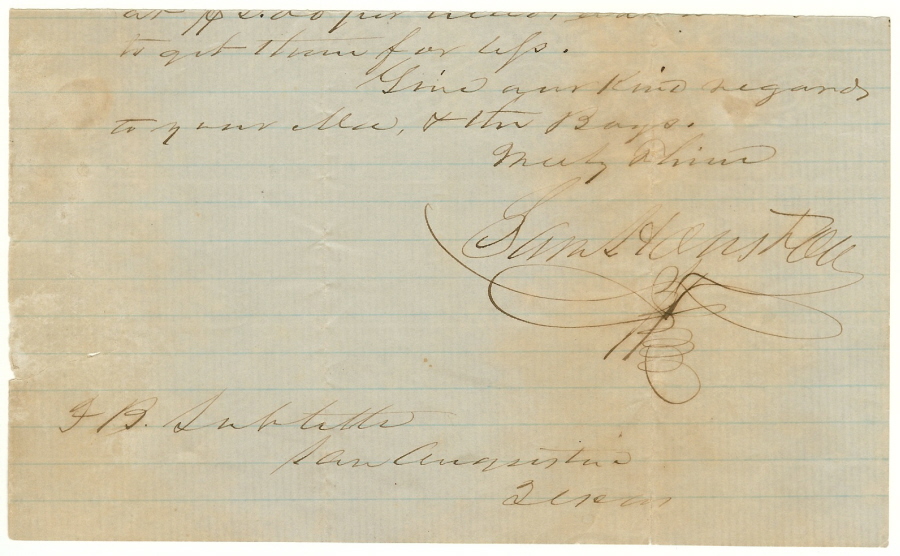 at $2.00 per head,
to get them for less.
Give our kind regards
to your Ma, & the Boys.
Truly Thine
Sam Houston
F B. Sublett
San Augustine
Texas